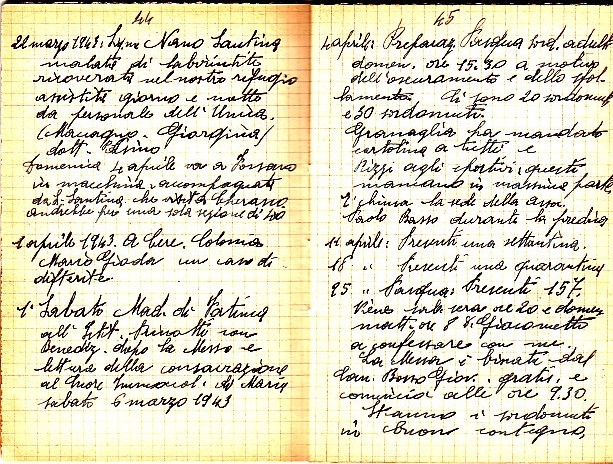 44
22 marzo 1943: Nano Santina
malata di labirintite
ricoverata nel nostro rifugio
assistita giorno e notte
da personale dell'Unica.
Giorgina)
dott.
Domenica 4 aprile va a Fossano
in macchina, accompagnata
da Santina che visita Cherasco.
andrebbe per una sola
1 aprile 1943. A Cere, Colonia
Mario Gioda un caso di
difterite
1° Sabato Mad. di Fatima
all'Istit. con
Benediz. dopo la Messa e
lettura della consacrazione
al Cuore Immacol. di Maria
sabato 6 marzo 1943
45
4 aprile: Preparaz. Pasqua sord. adulti
domen. ore 15.30 a motivo
dell'oscuramento e dello sfol-
lamento. Ci sono 20 sordomute
e 30 sordomuti.
Granaglia ha mandato
cartolina a tutti e
Rizzi agli sportivi; questi
mancano in massima parte.
È chiusa la sede della assoc.
Paolo Basso durante la predica
11 aprile: Presenti una settantina.
18 " Presenti una quarantina
25 " Pasqua: Presenti 157.
Viene sab. sera ore 20 e domen.
matt. ore 8 D. Giacometto
a confessare con me.
La Messa è binata dal
San. Bosso Giov. gratis, e
comincia alle ore 9.30.
Stanno i sordomuti
in buon contegno,